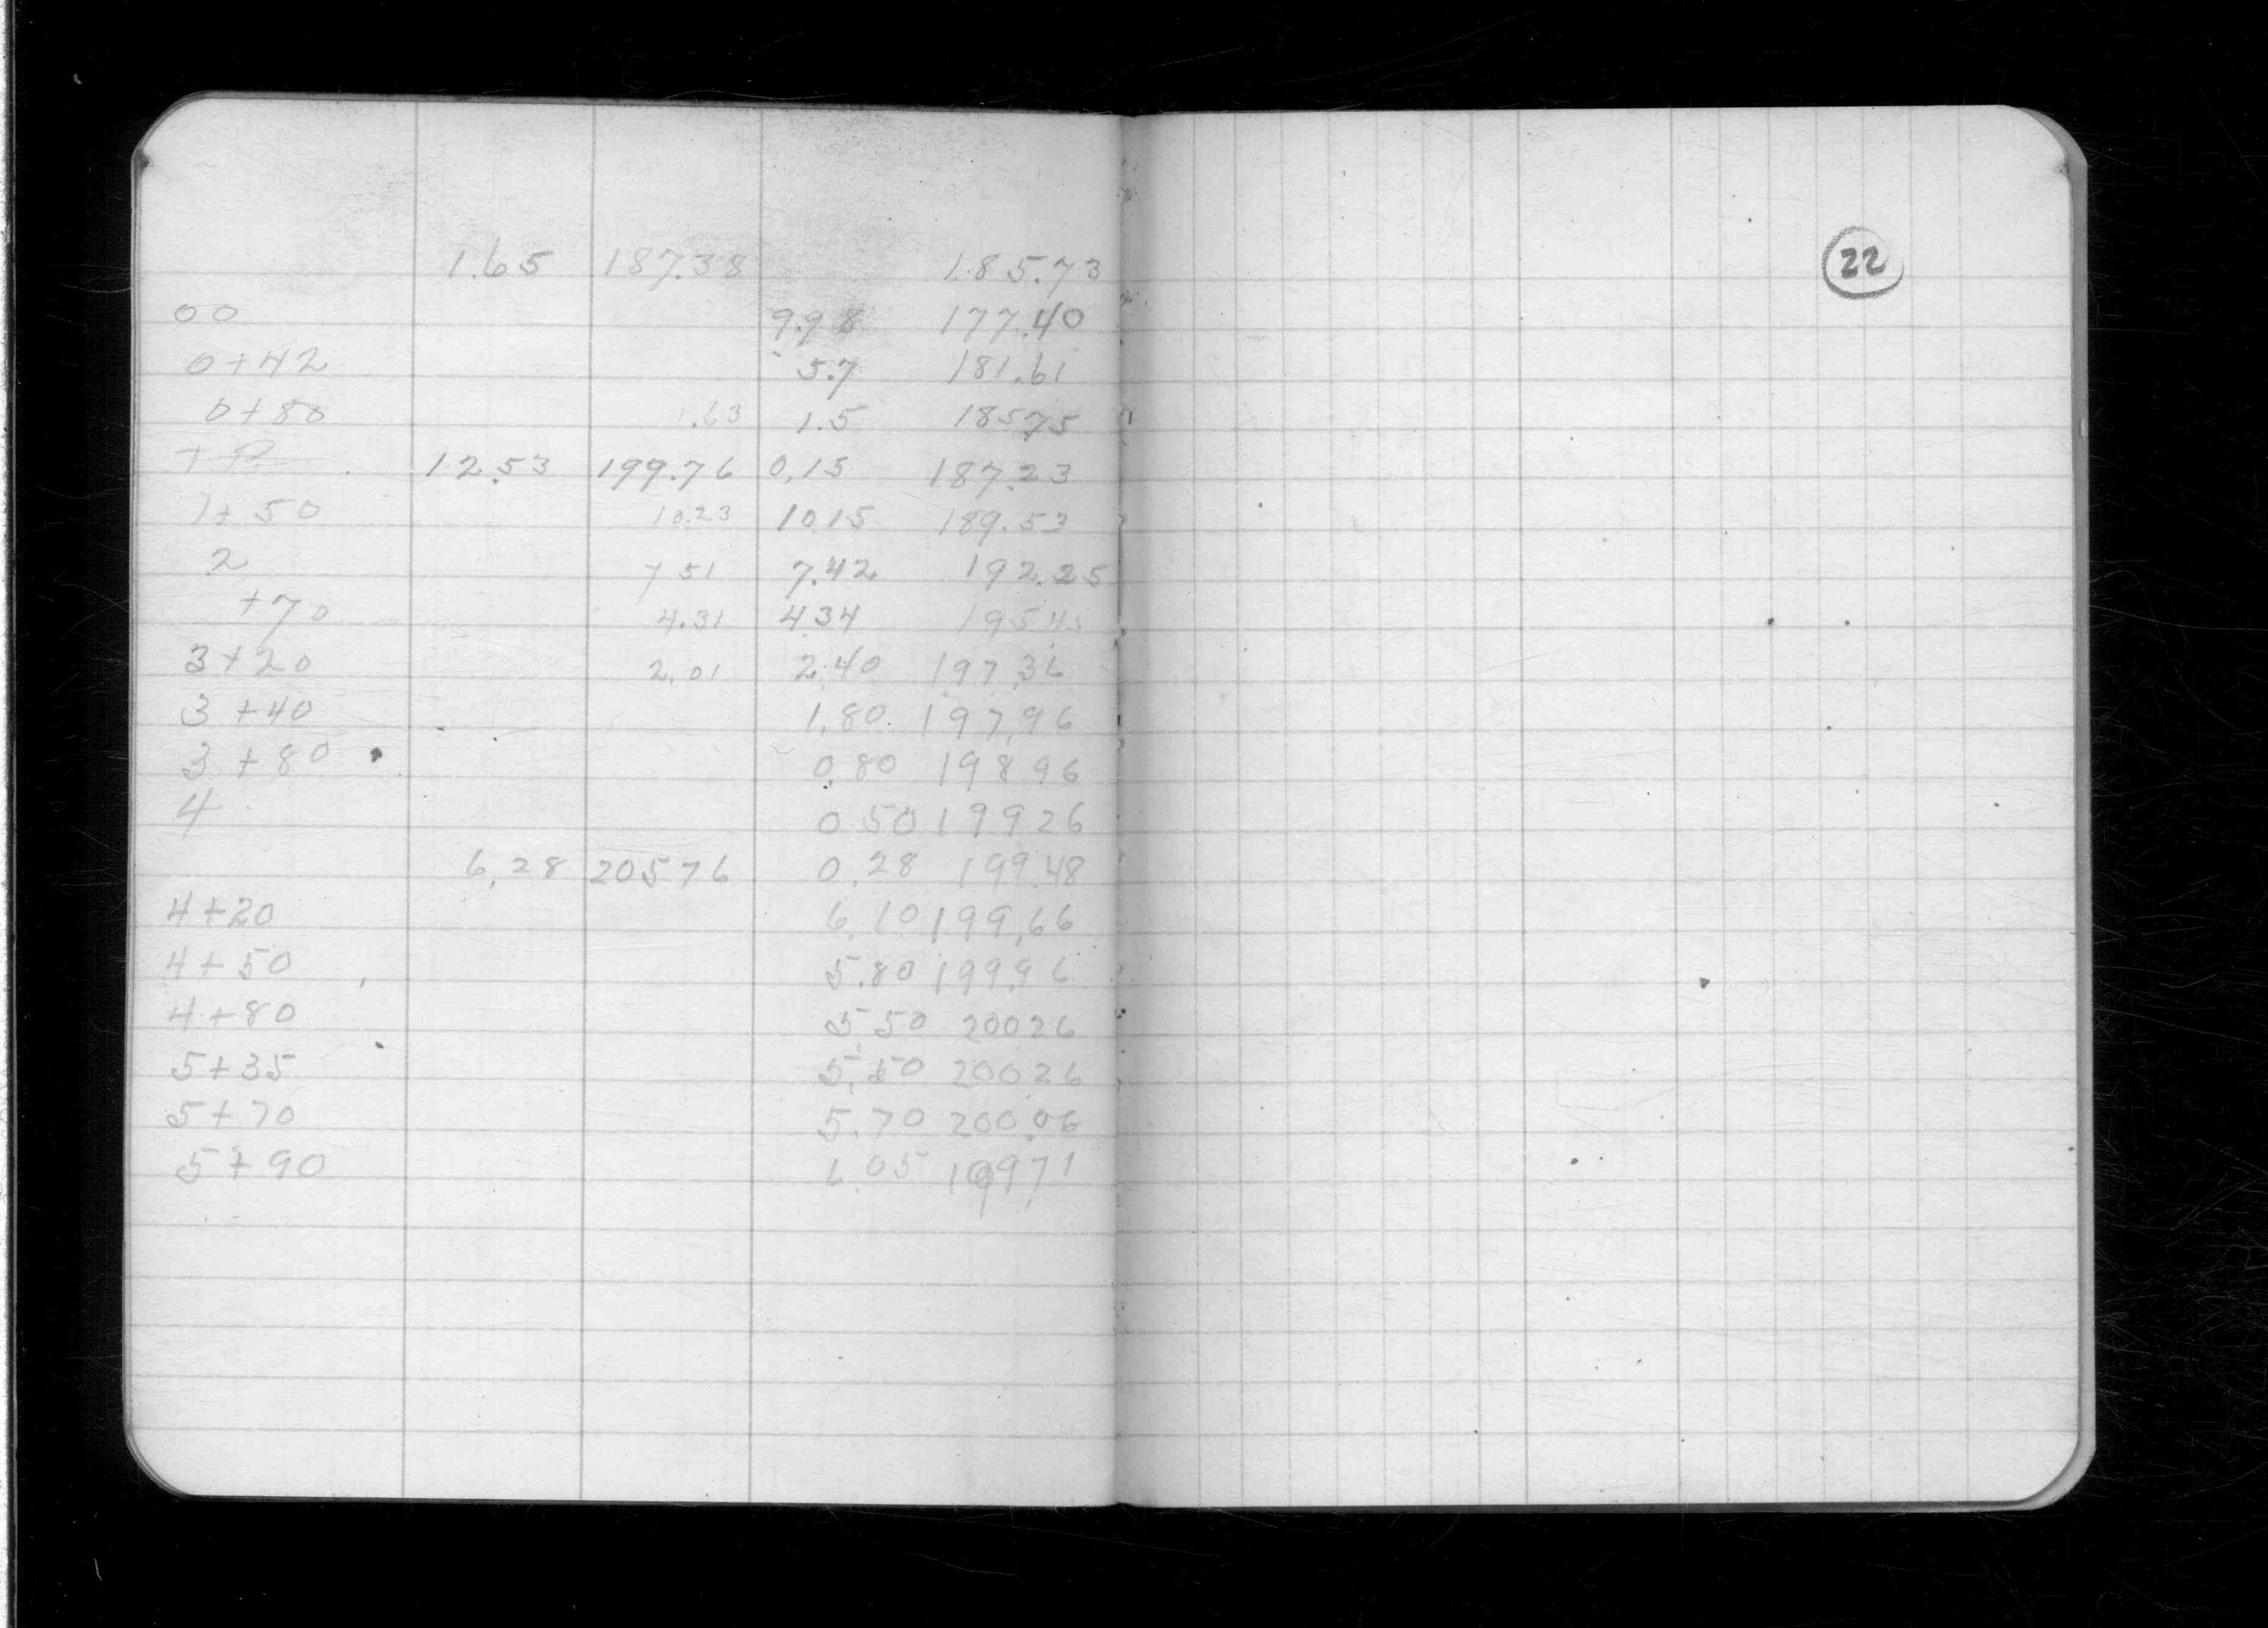 1.65 187.38 185.73
22
00 9.98 177.40
0+42 5.7 181.61
0+80 1.63 1.5 18575
12.53 199.76 0.15 187.23
1+50 10.23 10.15 189.53
2 7 51 7.42 192.25
+70 4.31 4 34 195 45
3+20 2.01 2.40 197.36
3+40 1.80 197.96
3+80 0.80 198 96
4 0 50 199 26
6.28 205 76 0.28 199.48
4+20 6.10 199.66
4+50 5.80 199.96
4+80 5 50 200 26
5+35 5.50 200 26
5+70 5.70 200.06
5+90 6.05 199 71